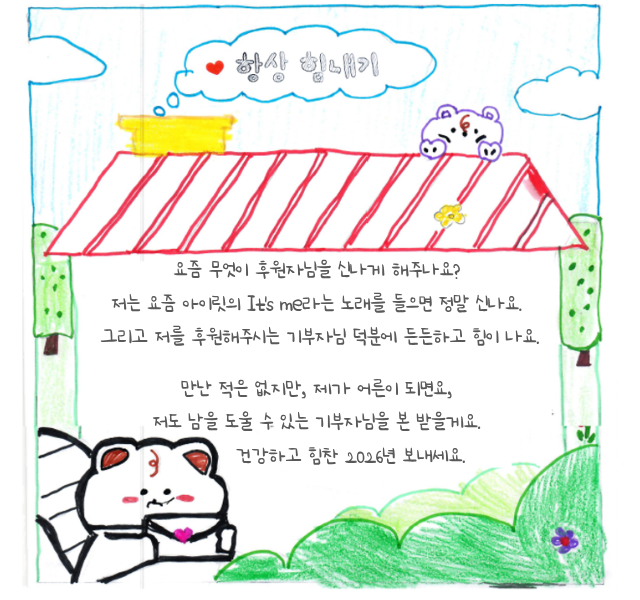 항상 힘내기
요즘 무엇이 후원자님을 신나게 해주나요?
저는 요즘 아이릿의 It's me라는 노래를 들으면 정말 신나요.
그리고 저를 후원해주시는 기부자님 덕분에 든든하고 힘이 나요.
만난 적은 없지만, 제가 어른이 되면요,
저도 남을 도울 수 있는 기부자님을 본 받을게요.
건강하고 힘찬 2026년 보내세요.